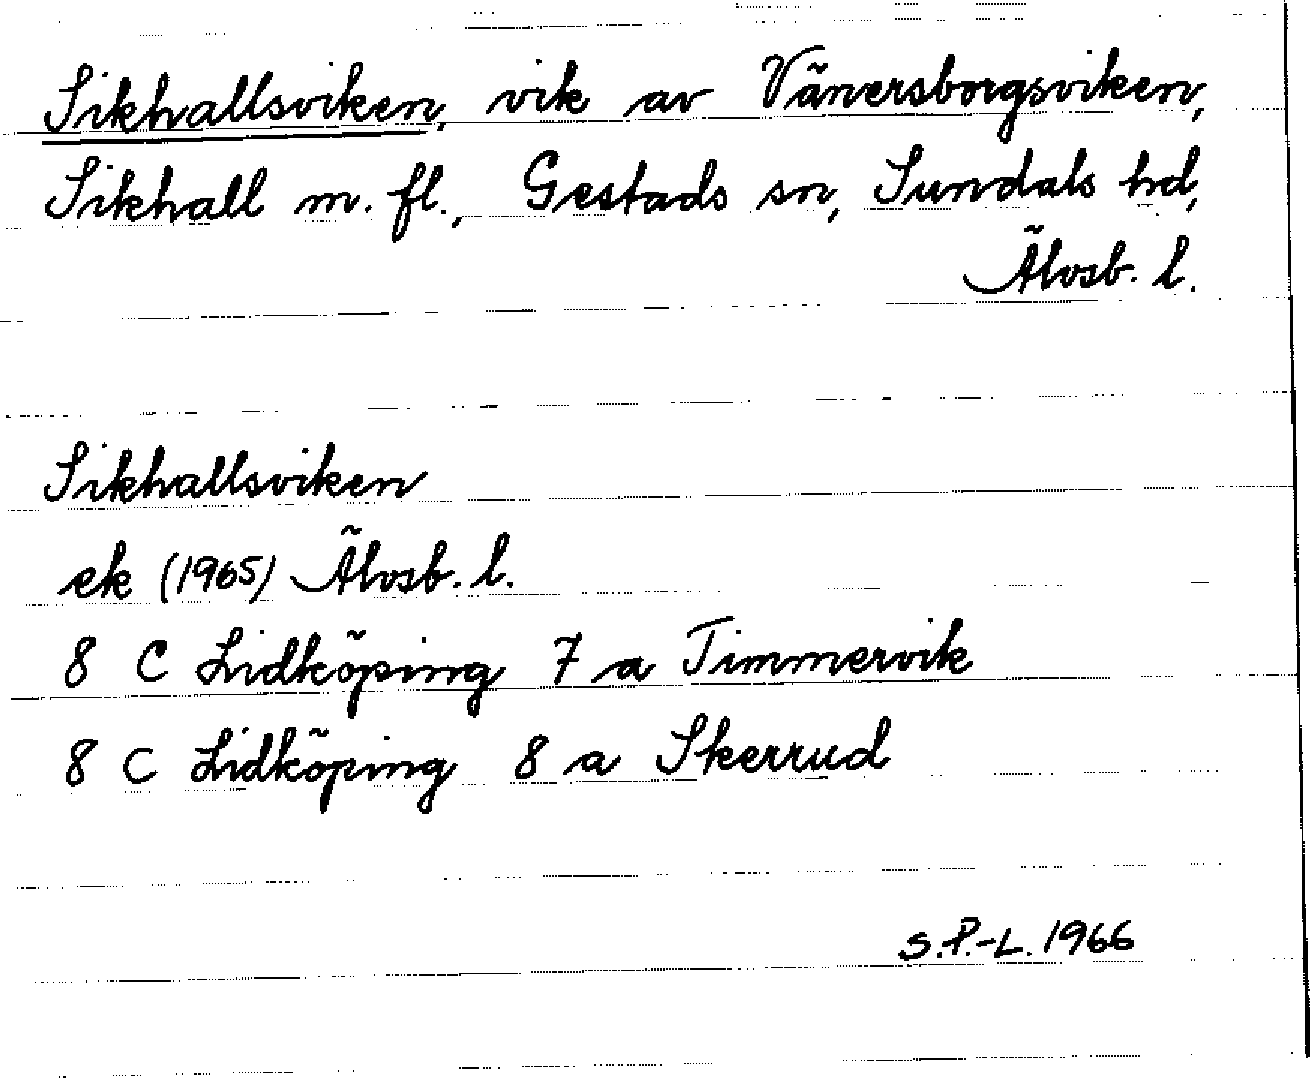 Sikhallsviken, vik av Vänersborgsviken,
Sikhall m. fl., Gestads sn, Sundals hd,
Älvsb. l.
Sikhallsviken
ek (1965) Älvsb. l.
8 C Lidköping 7 a Timmervik
8 C Lidköping 8 a Skerrud
S.P.-L. 1966